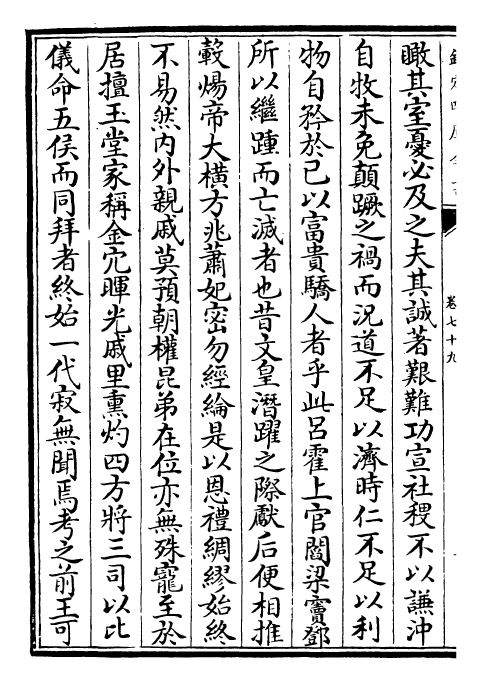 欽定四庫全書
卷七十九
瞰其室憂必及之夫其誠著艱難功宣社稷不以謙沖
自牧未免顛蹶之禍而況道不足以濟時仁不足以利
物自矜於已以富貴驕人者乎此呂霍上官閻梁竇鄧
所以繼踵而亡滅者也昔文皇潛躍之際獻后便相推
轂煬帝大橫方兆蕭妃密勿經綸是以恩禮綢繆始終
不易然内外親戚莫預朝權昆弟在位亦無殊寵至於
居擅玉堂家稱金穴暉光戚里熏灼四方將三司以比
儀命五侯而同拜者終始一代寂無聞焉考之前王可